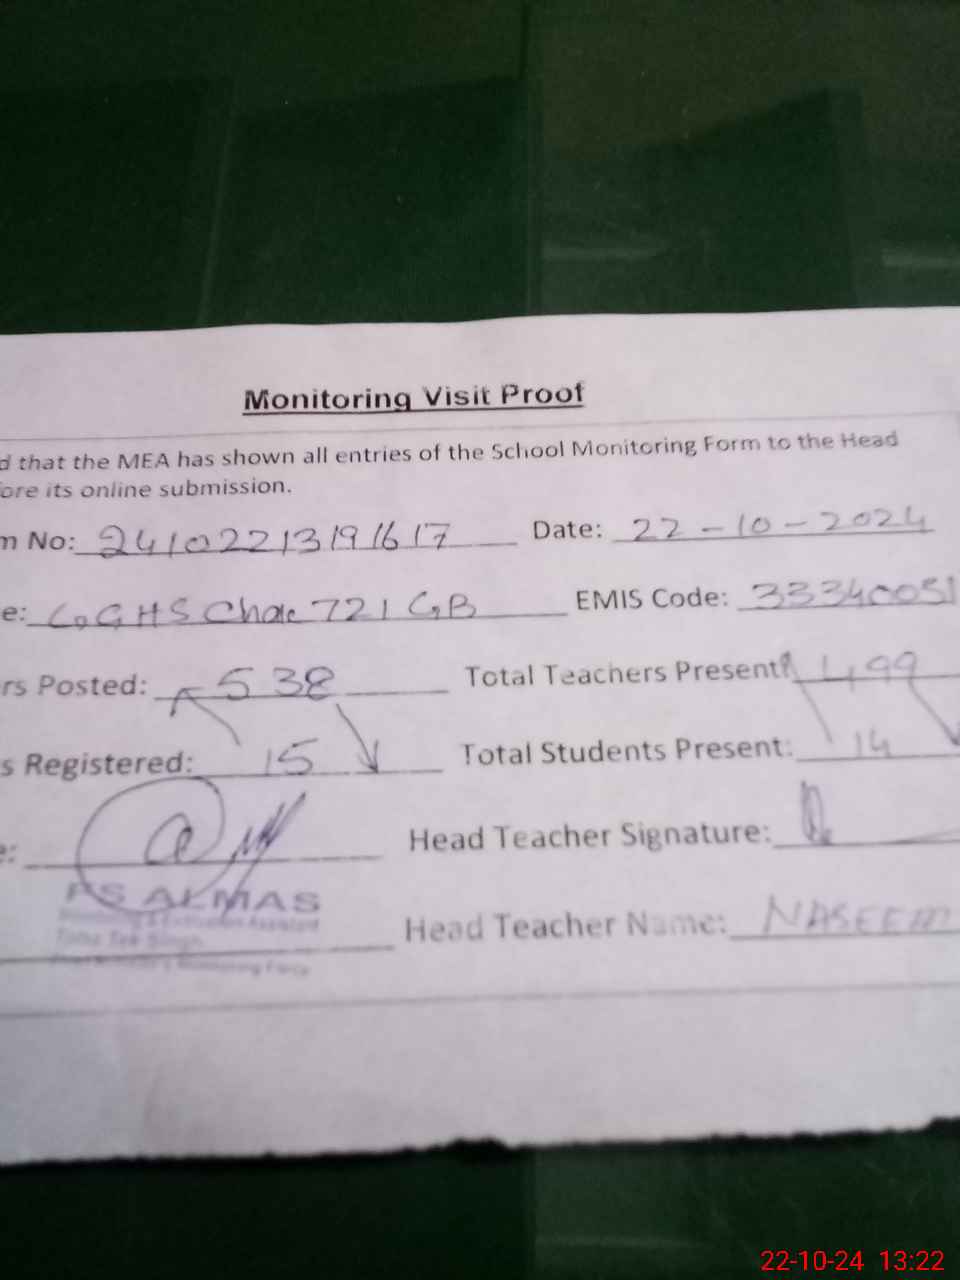 Monitoring Visit Proof
d that the MEA has shown all entries of the School Monitoring Form to the Head
ore its online submission.
m No: 24102213191617 Date: 22-10-2024
e: GGHS Chak 721 GB EMIS Code: 33340051
rs Posted: 538 Total Teachers Present: 499
s Registered: 15 Total Students Present: 14
e: Head Teacher Signature:
ALMAS
Head Teacher Name: NASEEM
22-10-24 13:22